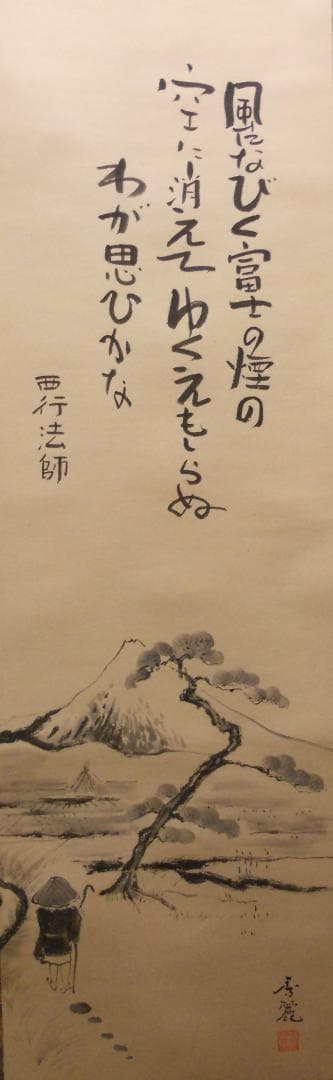 風になびく富士の煙の
空に消えてゆくえもしらぬ
わが思ひかな
西行法師
秀麗